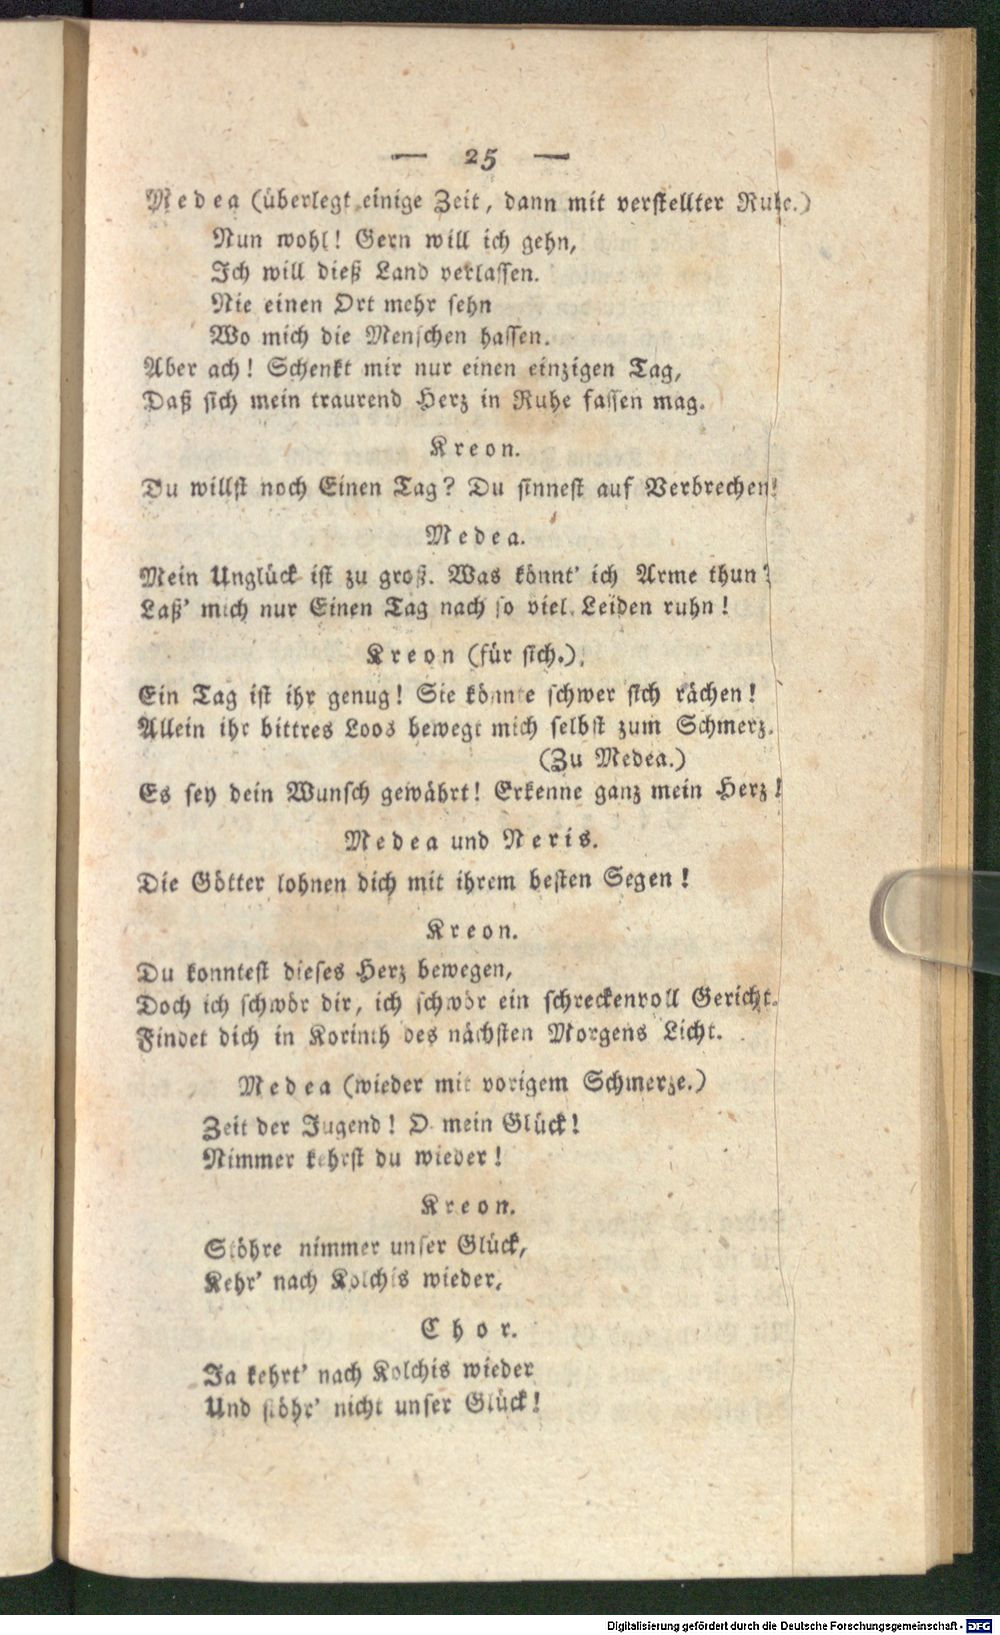 — 25 —
Medea (überlegt einige Zeit, dann mit verstellter Ruhe.)
Nun wohl! Gern will ich gehn,
Ich will dieß Land verlassen.
Nie einen Ort mehr sehn
Wo mich die Menschen hassen.
Aber ach! Schenkt mir nur einen einzigen Tag,
Daß sich mein traurend Herz in Ruhe fassen mag.
Kreon.
Du willst noch Einen Tag? Du sinnest auf Verbrechen!
Medea.
Mein Unglück ist zu groß. Was könnt' ich Arme thun?
Laß' mich nur Einen Tag nach so viel Leiden ruhn!
Kreon (für sich.)
Ein Tag ist ihr genug! Sie könnte schwer sich rächen!
Allein ihr bittres Loos bewegt mich selbst zum Schmerz.
(Zu Medea.)
Es sey dein Wunsch gewährt! Erkenne ganz mein Herz!
Medea und Neris.
Die Götter lohnen dich mit ihrem besten Segen!
Kreon.
Du konntest dieses Herz bewegen,
Doch ich schwör dir, ich schwör ein schreckenvoll Gericht.
Findet dich in Korinth des nächsten Morgens Licht.
Medea (wieder mit vorigem Schmerze.)
Zeit der Jugend! O mein Glück!
Nimmer kehrst du wieder!
Kreon.
Stöhre nimmer unser Glück,
Kehr' nach Kolchis wieder,
Chor.
Ja kehrt' nach Kolchis wieder
Und stöhr' nicht unser Glück!
Digitalisierung gefördert durch die Deutsche Forschungsgemeinschaft - DFG